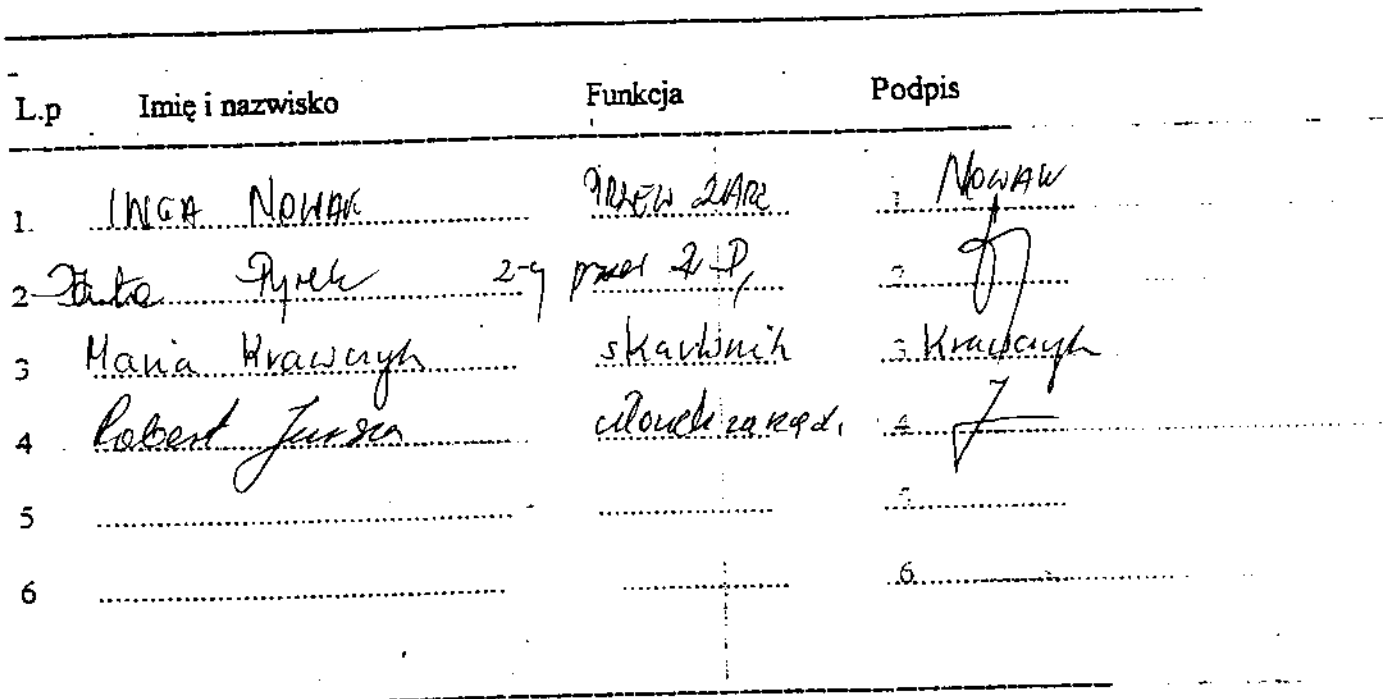 L.p Imię i nazwisko Funkcja Podpis
1. INGA NOWAK PRZEW ZARZ 1. NOWAK
2 Pyrek 2-ca przew 2
3 Maria Krawczyk skarbnik 3 Krawczyk
4 Robert Jursza członek zarząd. 4
5 5
6 6